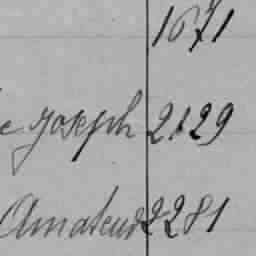 1671
e Joseph 2129
Amateur 2281